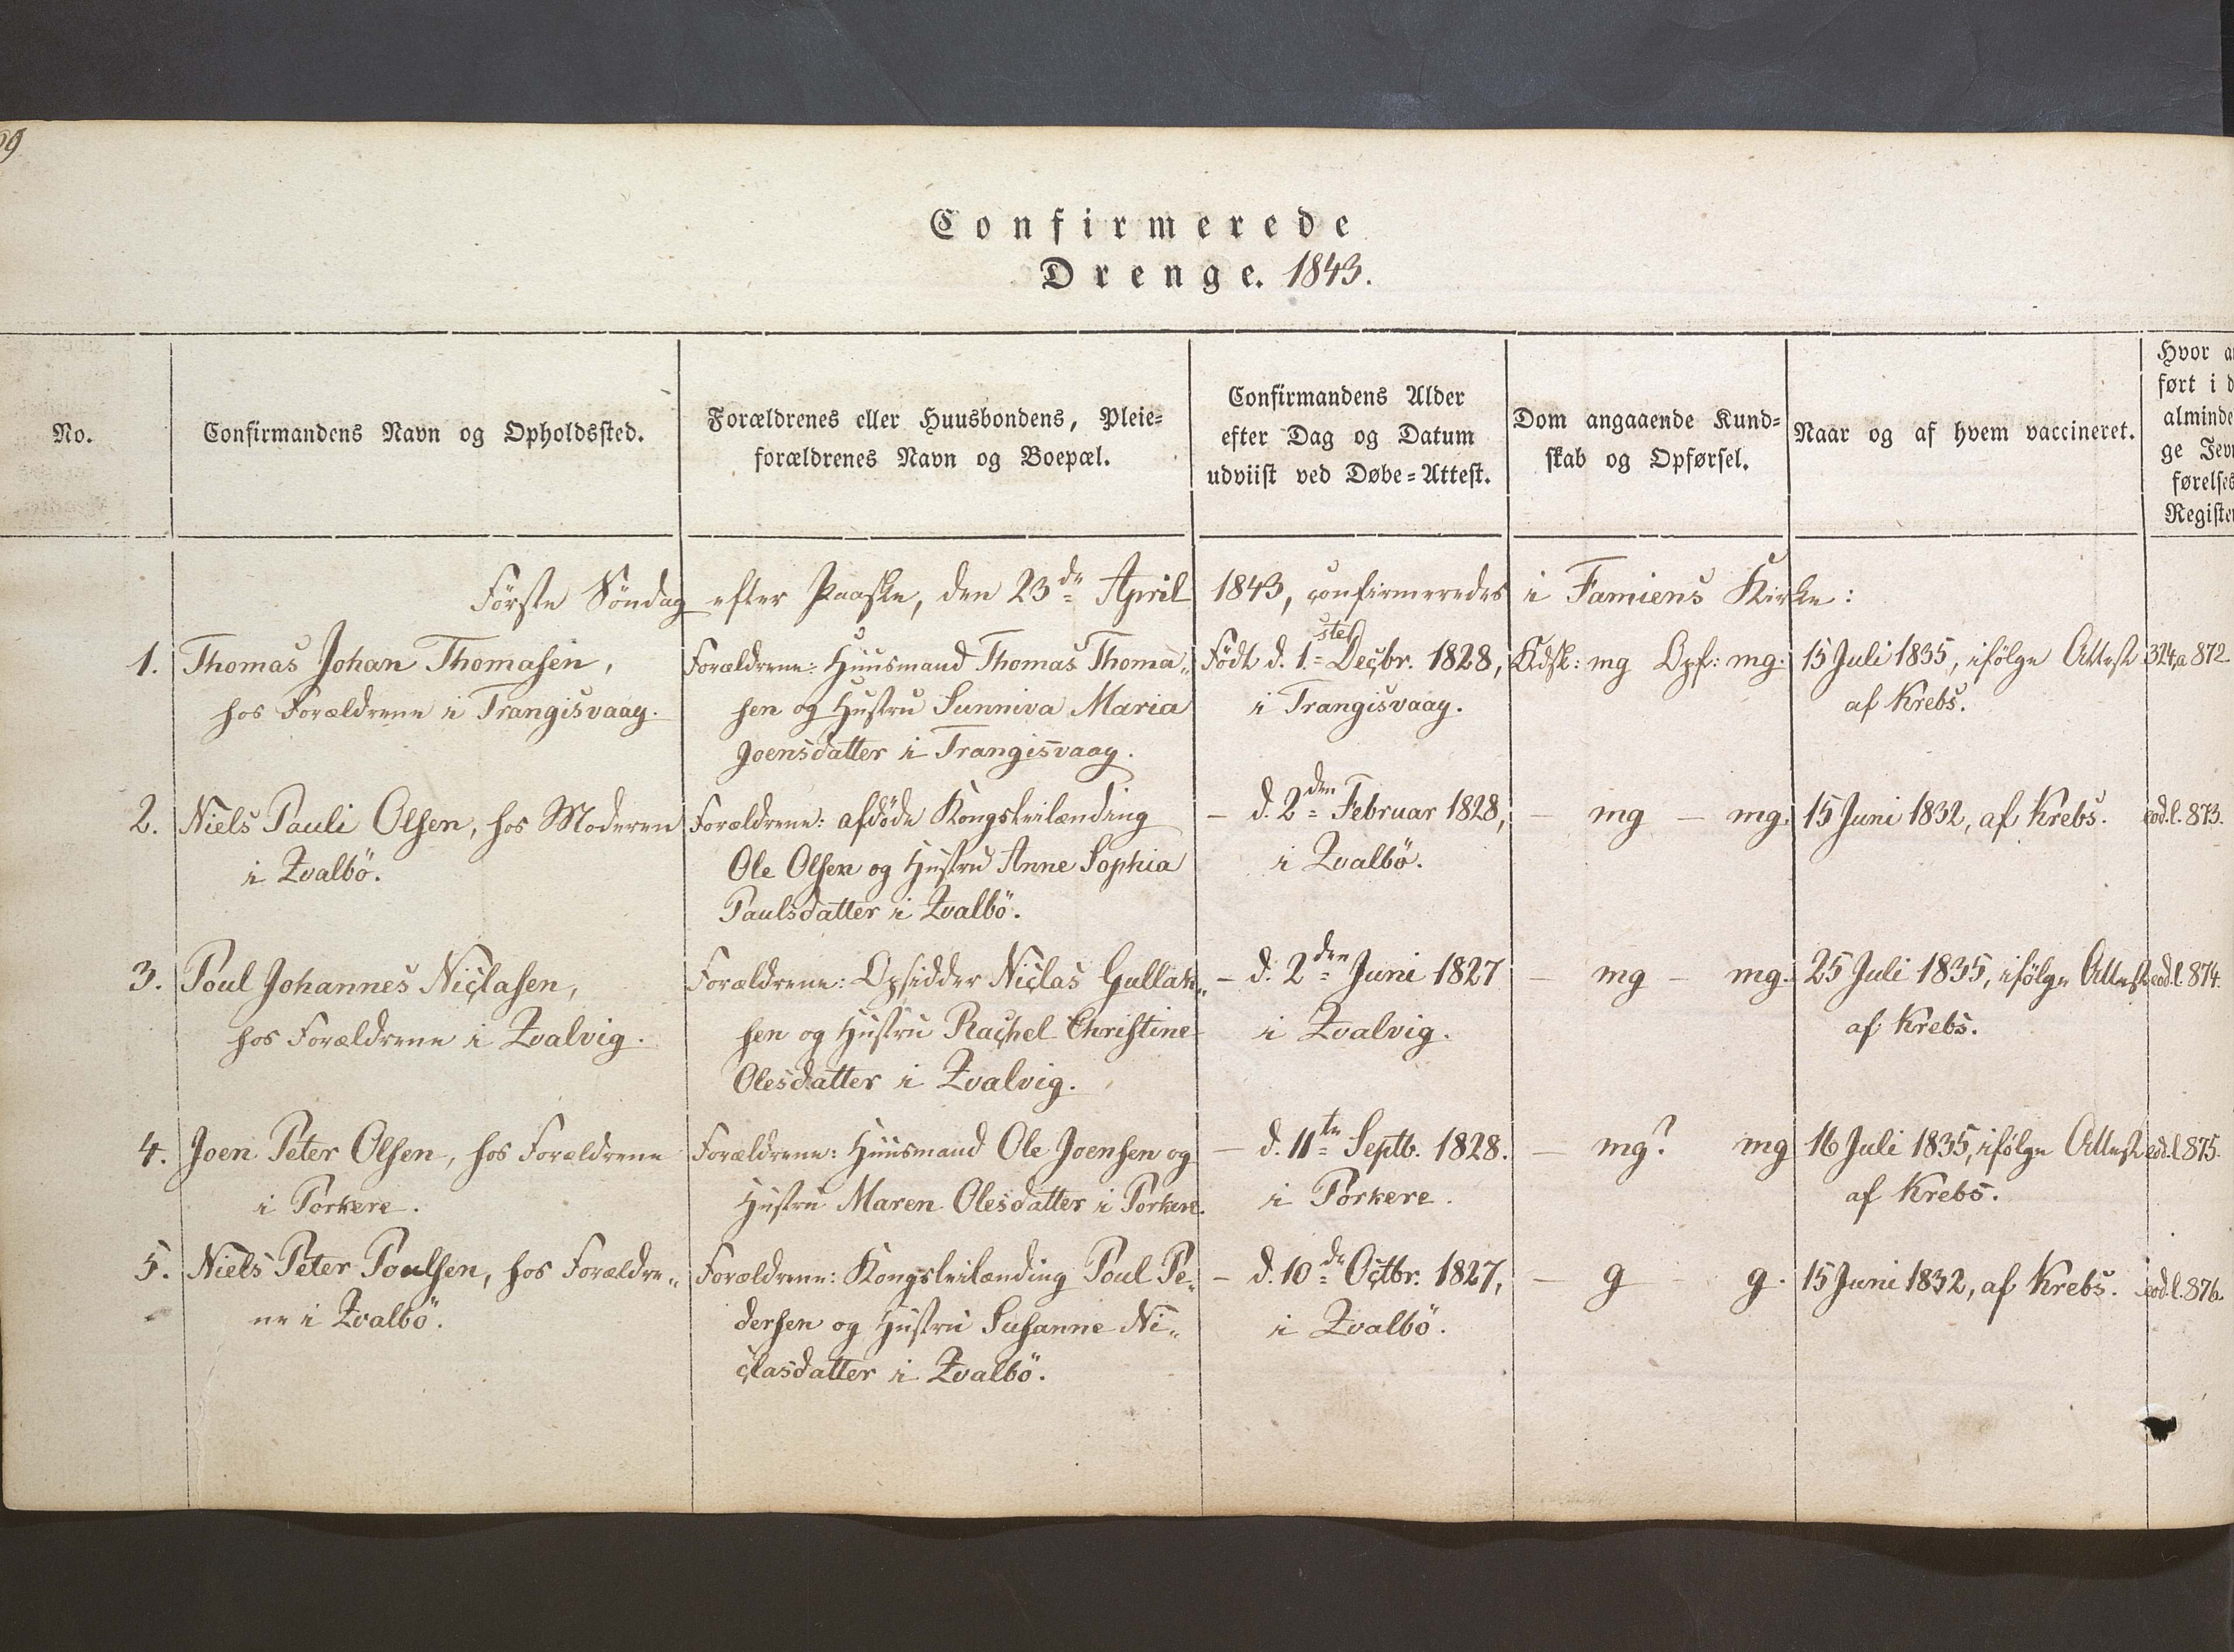 Confirmerede
Drenge. 1843.
No.
Confirmandens Navn og Opholdssted.
Forældrenes eller Huusbondens, Pleie-
forældrenes Navn og Boepæl.
Confirmandens Alder
efter Dag og Datum
udviist ved Døbe-Attest.
Dom angaaende Kund-
skab og Opførsel.
Naar og af hvem vaccineret.
Hvor
ført i
alminde
ge
førelses
Registe
Förste Söndag efter Paaske, den 23de April 1843, confirmeredes i Famiens Kirke:
1.
Thomas Johan Thomasen,
hos Forældrene i Trangisvaag.
Forældrene: Huusmand Thomas Thoma„
sen og Hustru Sunniva Maria
Joensdatter i Trangisvaag.
Födt d. 1ste Decbr. 1828,
i Trangisvaag.
Kdsk: mg Opf: mg.
15 Juli 1835, ifölge Attest
af Krebs.
324,a 872
2.
Niels Pauli Olsen, hos Moderen
i Qvalbö.
Forældrene: afdöde Kongsleilænding
Ole Olsen og Hustru Anne Sophia
Paulsdatter i Qvalbö.
– d. 2den Februar 1828,
i Qvalbö.
– mg – mg.
15 Juni 1832, af Krebs.
eod.l. 873.
3.
Poul Johannes Niclasen,
hos Forældrene i Qvalvig.
Forældrene: Opsidder Niclas Gullak„
sen og Hustru Rachel Christine
Olesdatter i Qvalvig.
– d. 2den Juni 1827
i Qvalvig.
– mg – mg.
25 Juli 1835, ifölge Attest
af Krebs.
eod.l. 874.
4.
Joen Peter Olsen, hos Forældrene
i Porkere.
Forældrene: Huusmand Ole Joensen og
Hustru Maren Olesdatter i Porkere.
– d. 11te Septb. 1828.
i Porkere.
– mg? mg
16 Juli 1835, ifölge Attest
af Krebs.
eod.l 875.
5.
Niels Peter Poulsen, hos Forældre„
ne i Qvalbö.
Forældrene: Kongsleilænding Poul Pe„
dersen og Hustru Susanne Ni„
clasdatter i Qvalbö.
– d. 10de Octbr. 1827,
i Qvalbö.
– g g.
15 Juni 1832, af Krebs.
eod.l. 876.